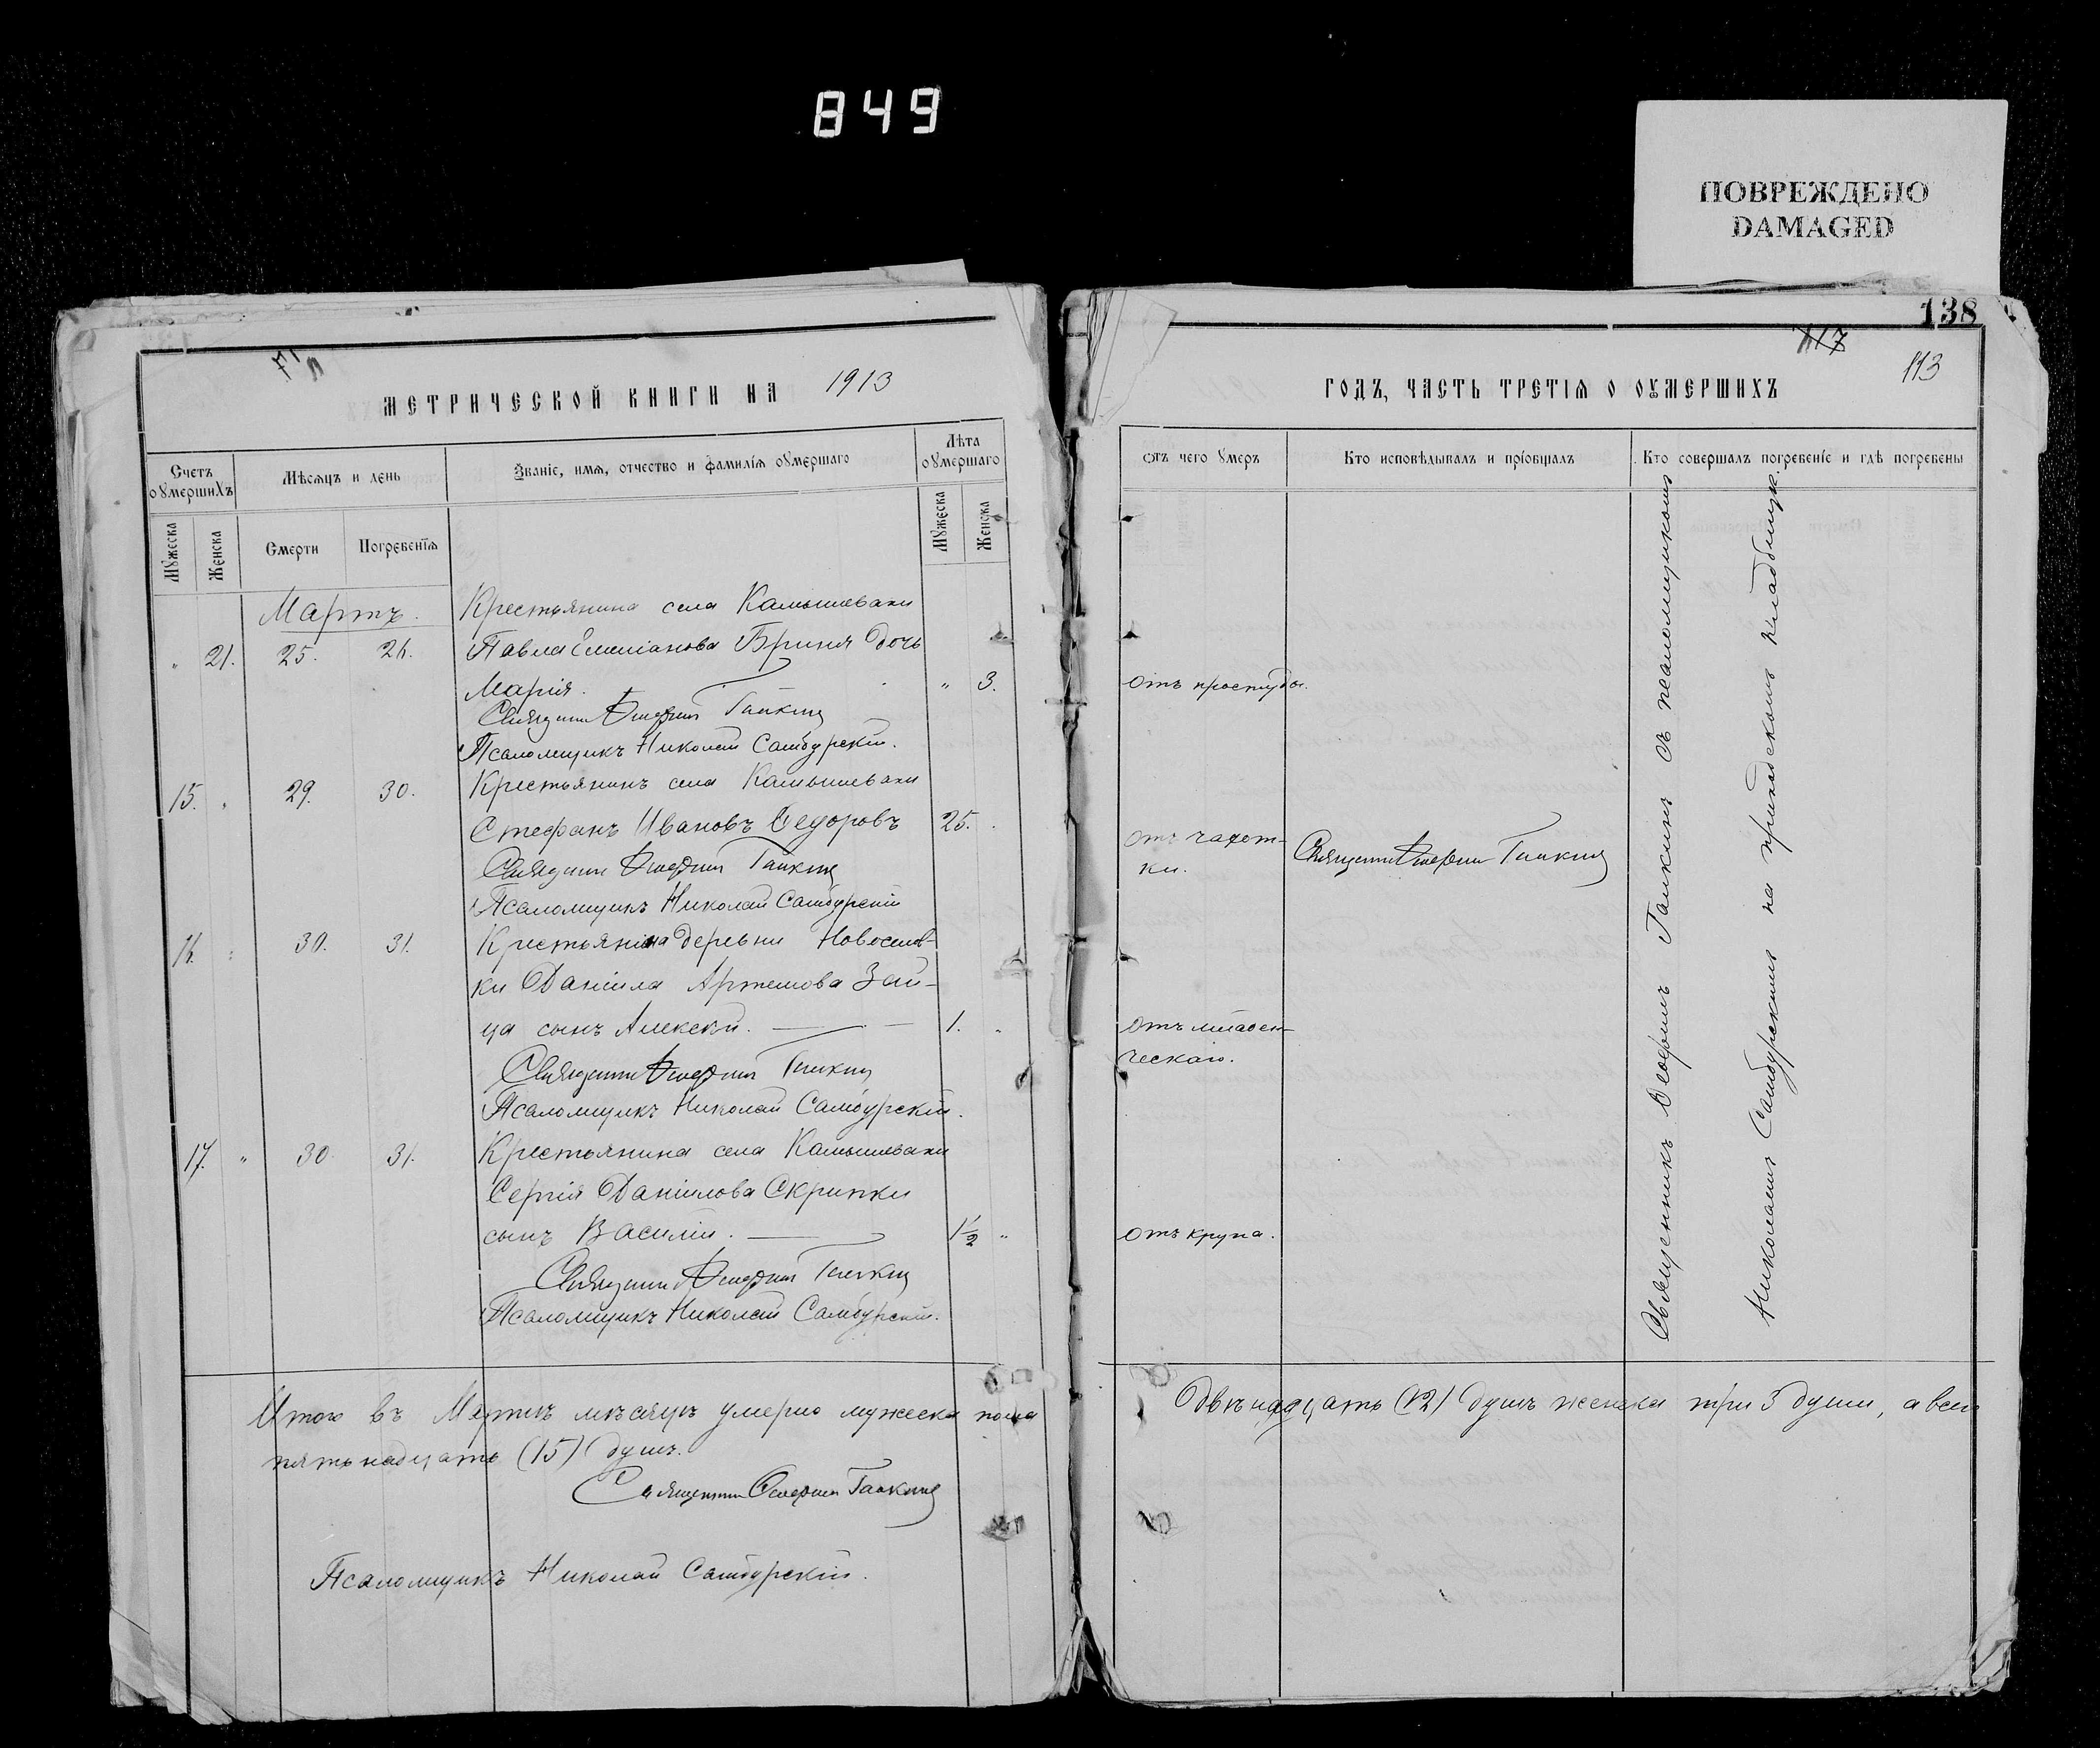 849
ПОВРЕЖДЕНО
DAMAGED
138
117
113
МЕТРИЧЕСКОЙ КНИГИ НА 1913
ГОДЪ, ЧАСТЬ ТРЕТІЯ О ОУМЕРШИХЪ
Счетъ оумершихъ
Мѣсяцъ и день
Званіе, имя, отчество и фамилія оумершаго
Лѣта оумершаго
Мужеска
Женска
Смерти
Погребенія
Мужеска
Женска
отъ чего умеръ
Кто исповѣдывалъ и пріобщалъ
Кто совершалъ погребеніе и гдѣ погребены
Мартъ.
Крестьянина села Камышевахи
" 21. 25. 26. Павла Емиліанова Бриня дочь
Марія. " 3. отъ простуды.
Священникъ Ѳеофилъ Галкинъ
Псаломщикъ Николай Самбурскій.
15. " 29. 30. Крестьянинъ села Камышевахи
Стефанъ Ивановъ Ѳедоровъ 25. отъ чахот-
ки. Священникъ Ѳеофилъ Галкинъ
Священникъ Ѳеофилъ Галкинъ
Псаломщикъ Николай Самбурскій
16. " 30. 31. Крестьянина деревни Новоселов-
ки Даніила Артемова Зай-
ца сынъ Алексѣй. 1. " отъ младен-
ческаго.
Священникъ Ѳеофилъ Галкинъ
Псаломщикъ Николай Самбурскій.
17. " 30. 31. Крестьянина села Камышевахи
Сергія Даніилова Скрипки
сынъ Василій. 1½ " отъ крупа.
Священникъ Ѳеофилъ Галкинъ
Псаломщикъ Николай Самбурскій.
Священникъ Ѳеофилъ Галкинъ съ псаломщикомъ
Николаемъ Самбурскимъ на приходскомъ кладбищѣ.
Итого въ Мартѣ мѣсяцѣ умерло мужеска пола
Двѣнадцать (12) душъ женска три 3 души, а всего
пятьнадцать (15) душъ.
Священникъ Ѳеофилъ Галкинъ
Псаломщикъ Николай Самбурскій.